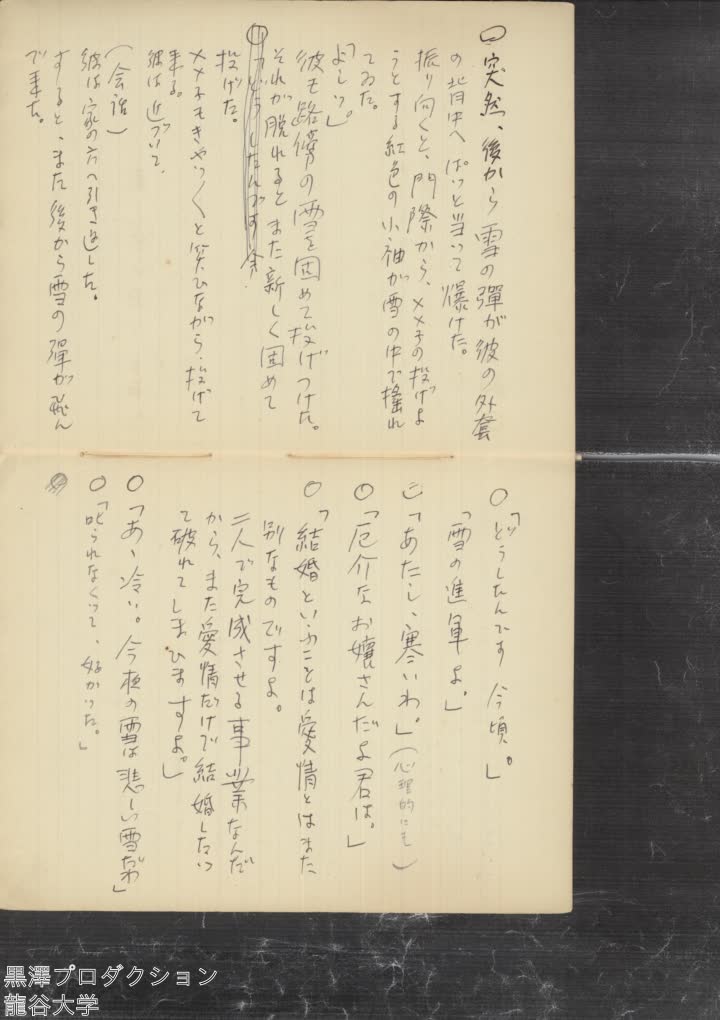 ○突然、後から雪の彈が彼の外套
の背中へぱッと当いて爆けた。
振り向くと、門際から、メメ子の投げよ
うとする紅色の小袖が雪の中で揺れ
てゐた。
「よしッ」。
彼も路傍の雪を固めて投げつけた。
それが脱れると また新しく固めて
「どうしたんです 今
投げた。
メメ子もきやッ〱と笑ひながら、投げて
来る。
彼は近づいて、
(会話)
彼は家の方へ引き返した。
すると、また後から雪の彈が飛ん
で来た。
○「どうしたんです 今頃。」
「雪の進軍よ。」
「あたし、寒いわ。」(心理的にも)
「厄介なお嬢さんだよ君は。」
○「結婚といふことは愛情とはまた
別なものですよ。
二人で完成させる事業なんだ
から、また愛情だけで結婚したつ
て破れてしまひますよ。」
○「あゝ冷い。今夜の雪は悲しい雪だわ」
○「叱られなくつて、好かつた。」
黒澤プロダクション
龍谷大学